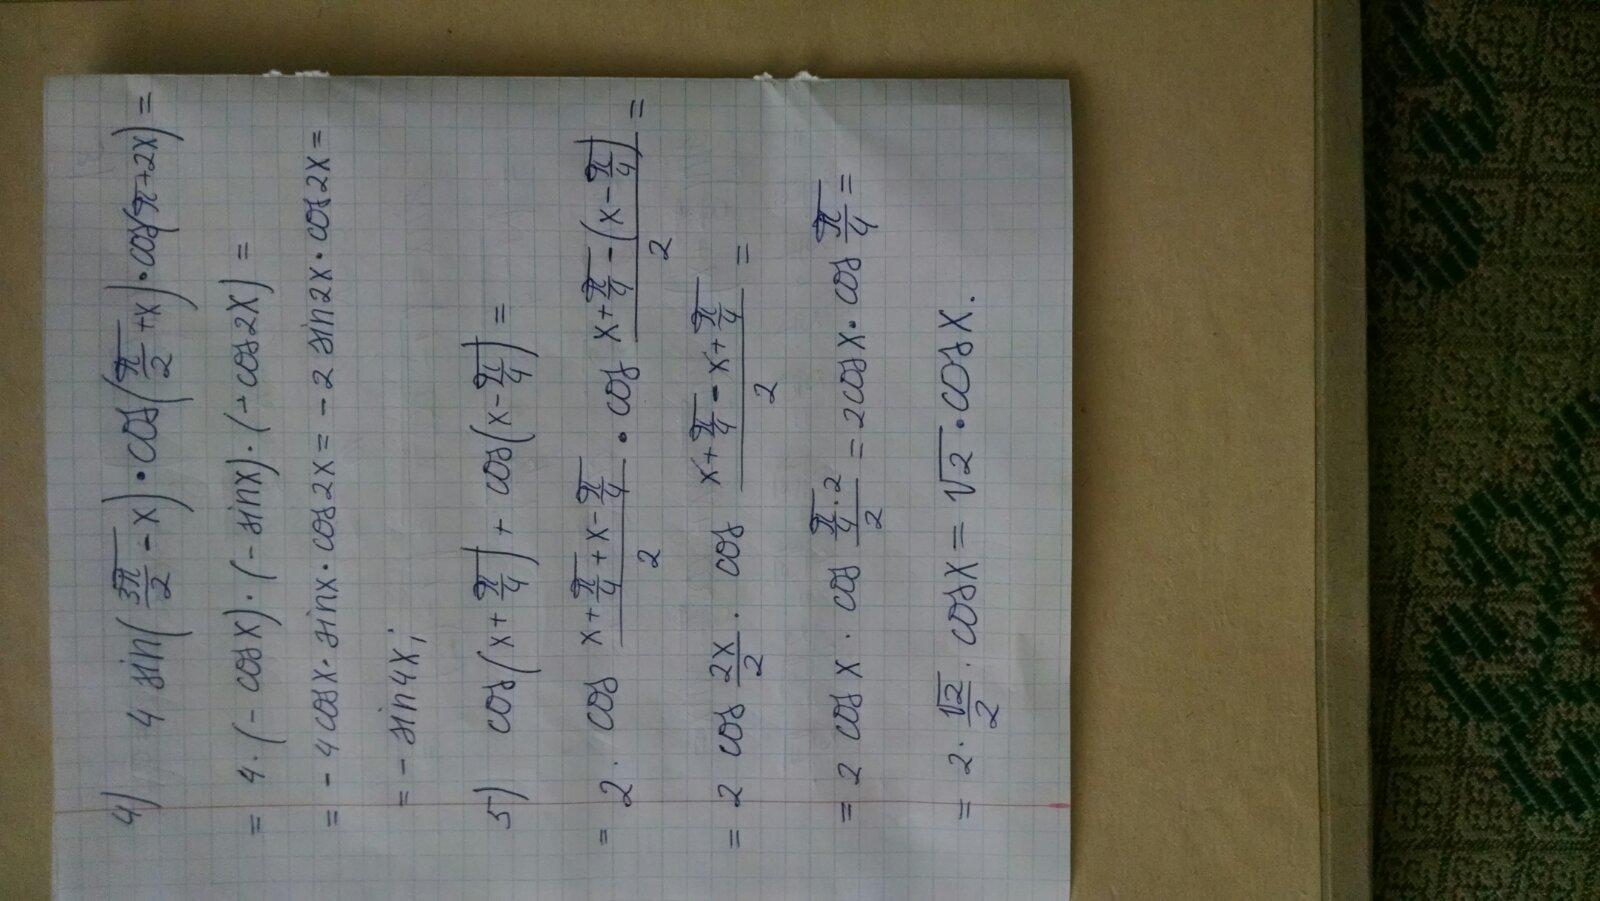 4) 4 sin(3π/2 - x)·cos(π/2 + x)·cos(π+2x) =
= 4·(- cosx)·(- sinx)·(- cos2x) =
= - 4cosx·sinx·cos2x = - 2 sin2x·cos2x =
= - sin4x;
5) cos(x + π/4) + cos(x - π/4) =
= 2· cos (x + π/4 + x - π/4)/2 · cos (x + π/4 - (x - π/4))/2 =
= 2 cos 2x/2 · cos (x + π/4 - x + π/4)/2 =
= 2 cosx · cos (π/4 · 2)/2 = 2cosx·cos π/4 =
= 2· √2/2 · cosx = √2·cosx.